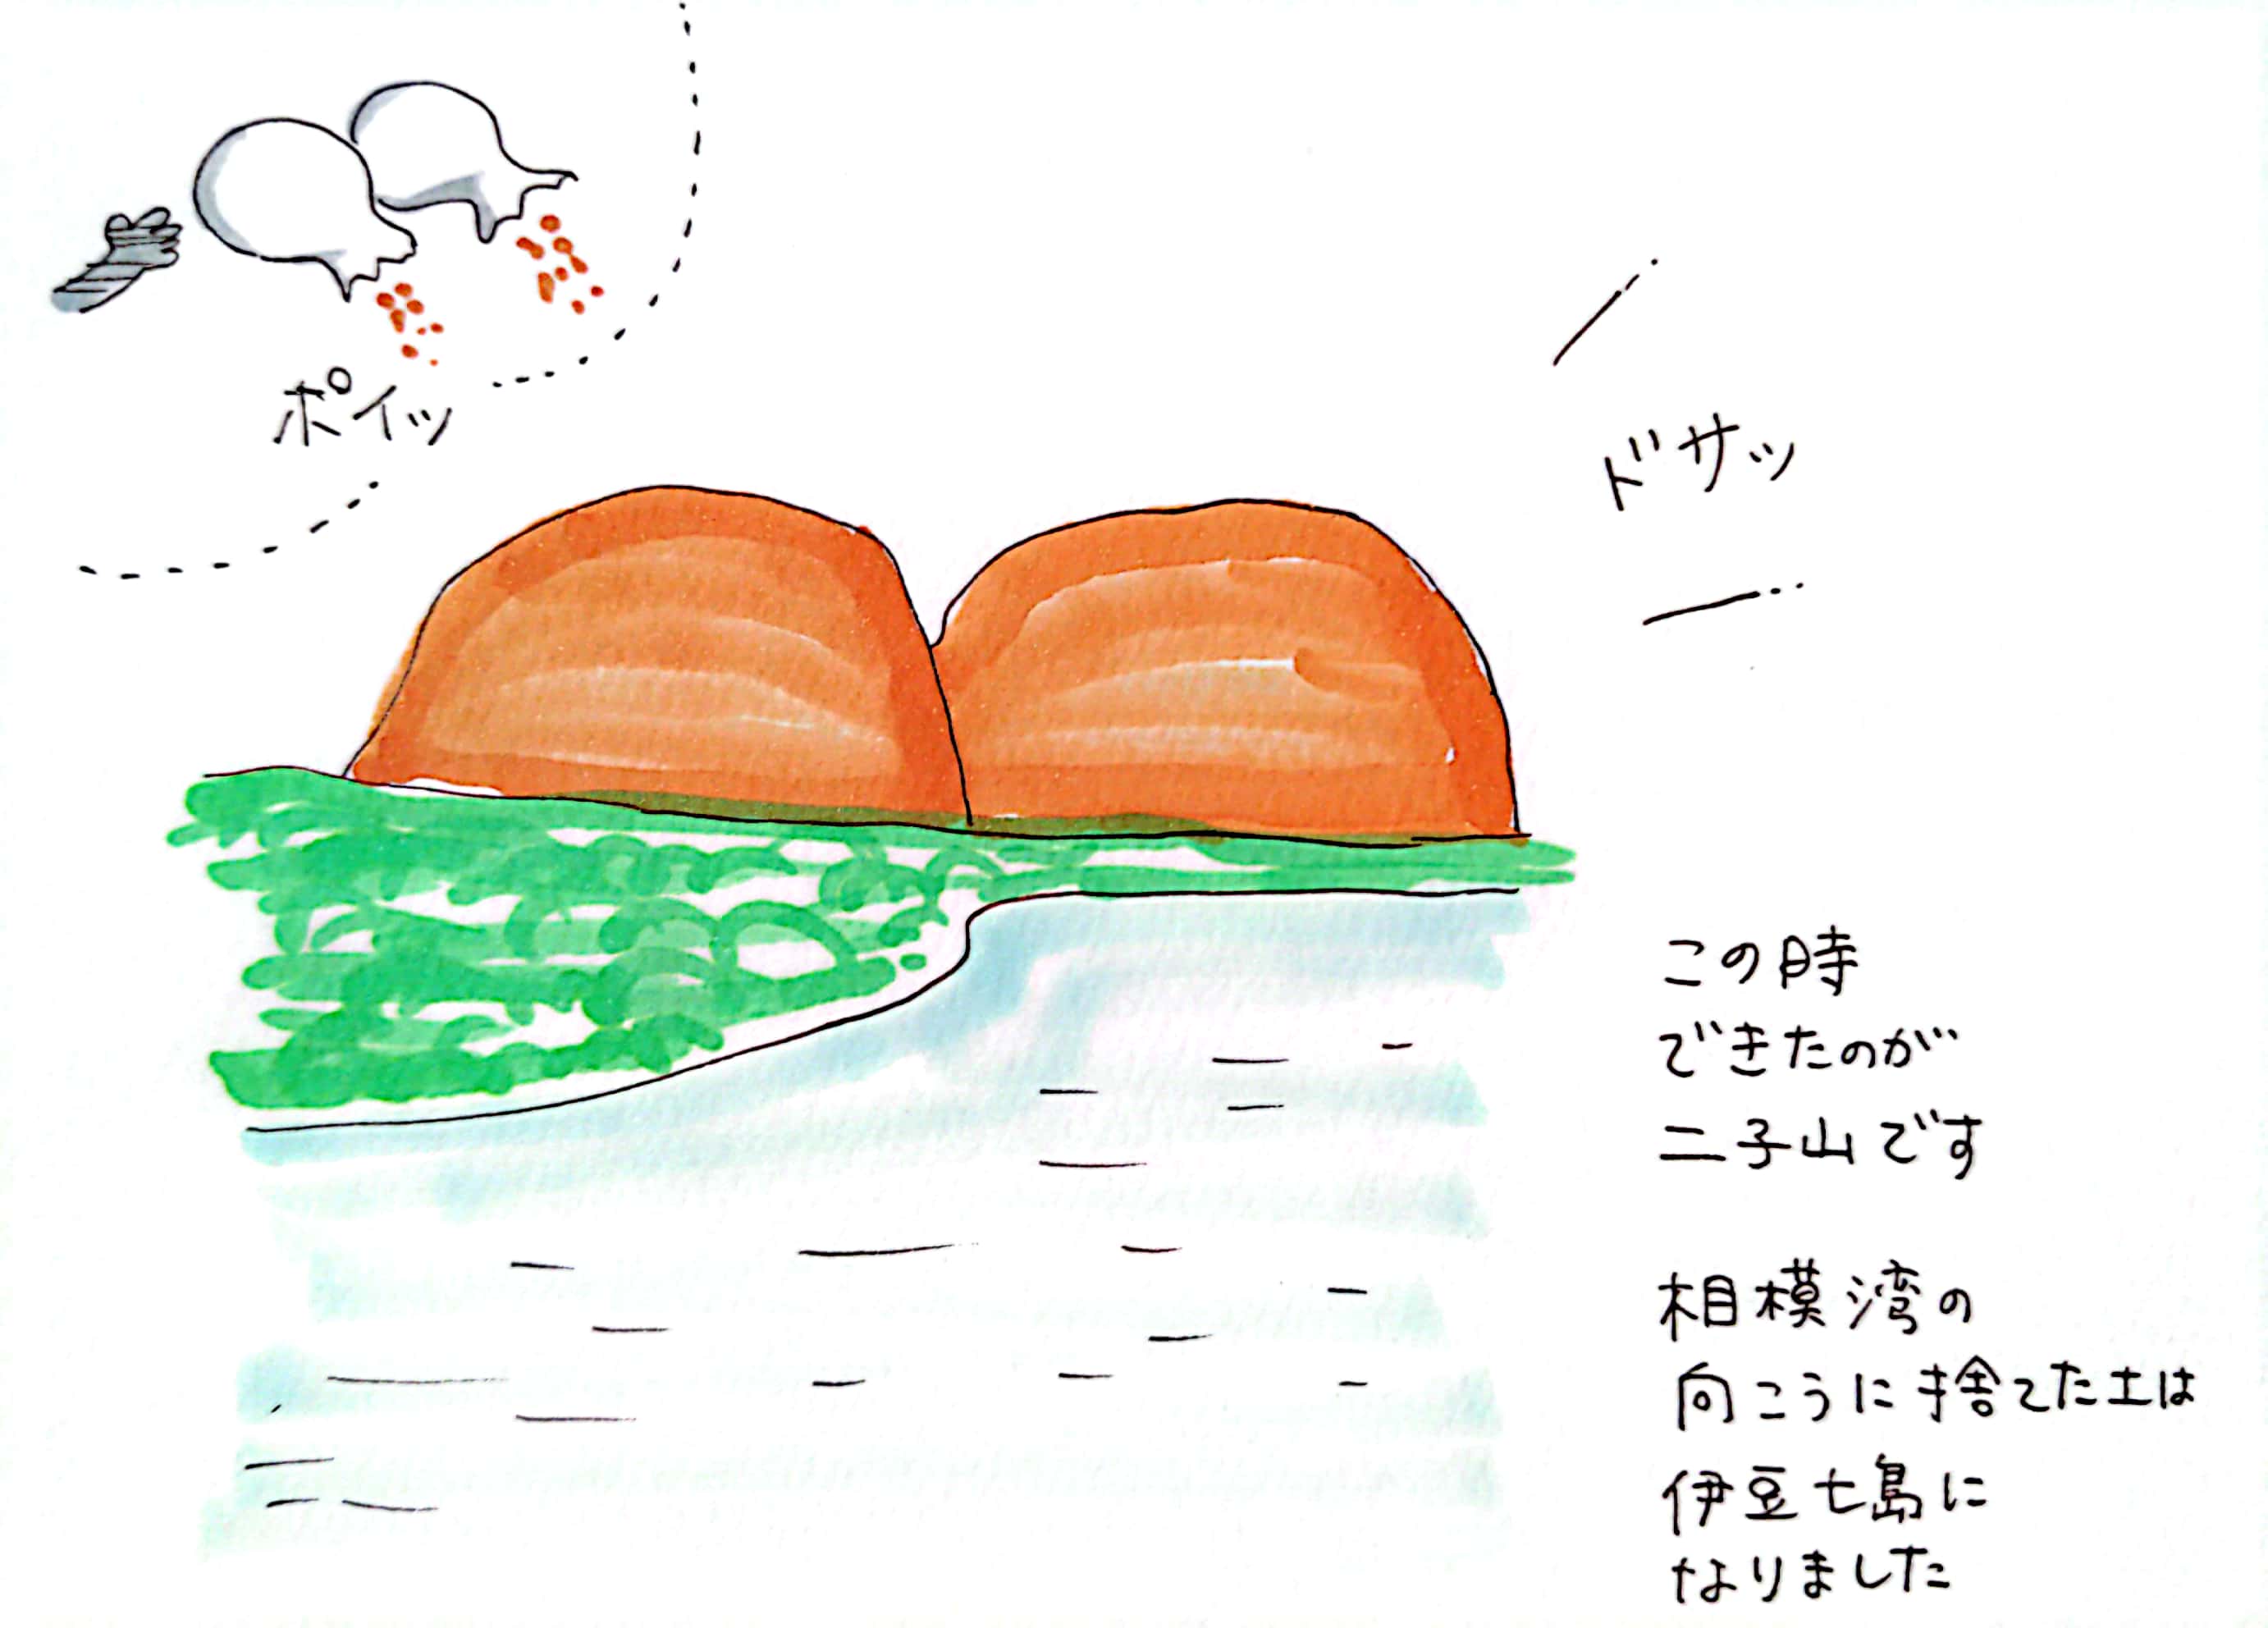 ポイッ
ドサッ
この時
できたのが
二子山です
相模湾の
向こうに捨てた土は
伊豆七島に
なりました